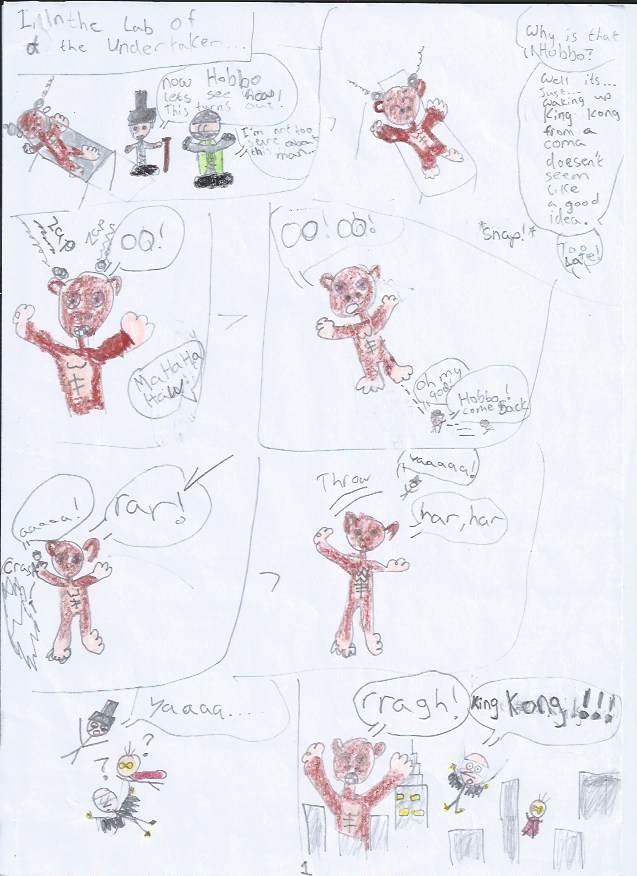 In the Lab of
the Undertaker...
Now Hobbo
lets see how
This turns out!
I'm not too
sure about
this man...
Why is that
Hobbo?
Well its...
Just...
waking up
King Kong
from a
coma
doesn't
seem
like
a good
idea.
Too
Late!
*Snap!*
Zap
Zap
OO!
MaHaHa
Haw!
OO! OO!
Oh my
god!
Hobbo!
come Back
aaaaa!
rar!
Crash
Throw
yaaaaa!
har, har
yaaaa...
?
?
rragh!
King Kong!!!
1